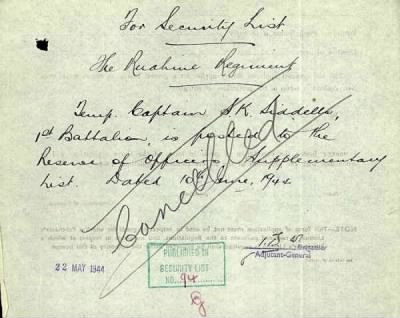 For Security List
The Ruahine Regiment
Temp. Captain S.K. Siddells,
1st Battalion, is posted to the
Reserve of Officers, Supplementary
List. Dated 10th June, 1942
Cancelled
PUBLISHED IN
SECURITY LIST
NO. 94
22 MAY 1944
Brigadier
Adjutant-General